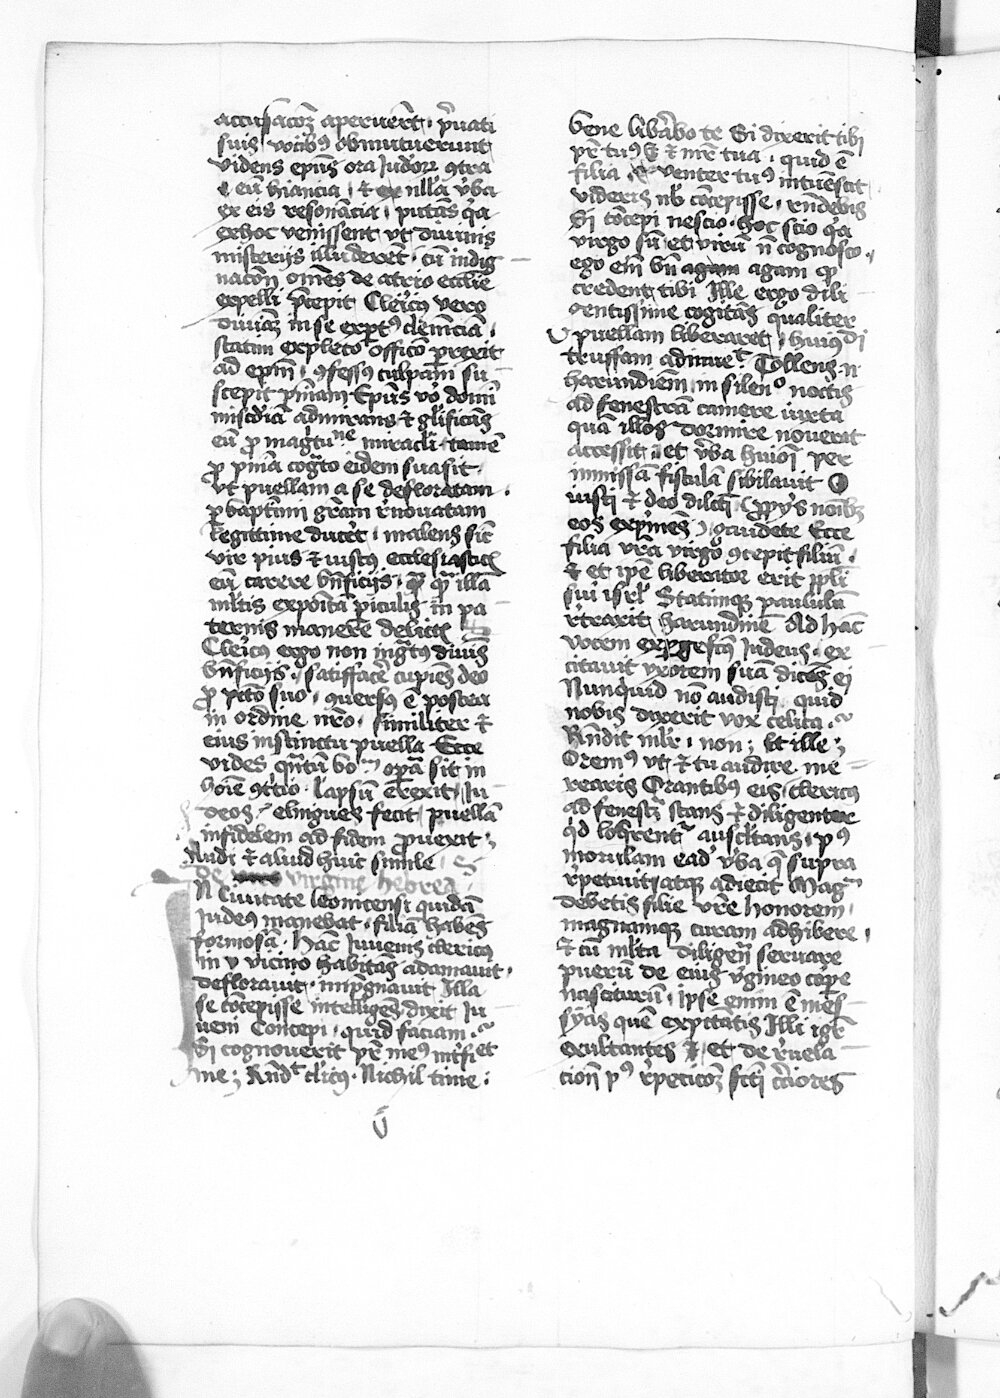 accusacōꝫ aperuerūt · p̄uati
suis vocibꝰ obmutuerunt
videns ep̄us ora Iudeoꝝ ꝯtra
eū hiancia · et nulla v̄ba
ex eis resonācia · putās q̄a
ex hoc venissent vt diuinis
misterijs illuderēt · cū indig
nacōn̄ om̄es de atrio eccl̄ie
expelli p̄cepit Cleric̄ꝰ vero
diuinā in se exp̄tꝰ clemēciā ·
statim expleto officō perrexit
ad ep̄m · ꝯfessꝰ culpam su
scepit pn̄iam Ep̄us vo᷒ domī
mis̄cdiā admirans et gl̄ificās
eū ꝓ maḡtu ne miracl̄i · tamē
ꝓ pn̄ia coḡto eidem suasit ·
vt puellam a se defloratam ·
ꝑ baptism̄ gr̄am r̄nouatam
legittime duc̄et · malens sic̄
vir pius et iustꝰ ecclesiasticꝭ
eū carere bn̄ficijs · qͣꝫ qͣ illā
ml̄tis expoītā p̄iculis in pa
ternis manere delictꝭ
Cleric̄ꝰ ergo non inḡtꝰ diuīs
bn̄ficijs · satisfac̄e cupiēs deo
ꝓ p̄cto suo · ꝯuersꝰ ē postea
in ordine nr̄o · similiter et
eius instinctu puella Ecce
vides qn̄tū bo oꝑa sit in
hoīe ꝯtricio · lapsū erexit · Iu
deos · elingues fecit · puellā
infidelem ad fidem ꝓuexit ·
Audi et aliud huic simile
de virgine hebrea
IN Ciuitate leonicensi quidā
Iudeꝰ manebat · filiā habēs
formosā · hāc Iuuenis clericꝰ
in vicino habitās adamauit ·
deflorauit · imp̄gnauit Illa
se cōcepisse intelligēs dixit Iu
ueni Concepi · quid faciam ·
Si cognouerit pr̄ meꝰ int̄fi et
me ; Rn̄dt cl̄icꝰ · Nichil time ·
bene libābo te Si dixerit tibi
pr̄ tuꝰ et mr̄ tua · quid ē
filia · venter tuꝰ intūescit
videris nb̄ cōcepisse · rn̄debis
Si cōcepi nescio · hoc scio q̄a
virgo sū et virū n̄ cognosco ·
ego em̄ bn̄ agam agam qͣ
credent tibi Ille ergo dili
gentissime cogitās qualiter
puellam liberaret · huiꝰ
truffam adinuet̄ Tollens n
harundiem̄ in silenº noctis
ad fenestrā camere iuxta
quā illos dormire nouerit
accessit · et v̄ba huiꝰ per
immissā fistulā sibilauit O
iusti et deo dilcī ꝓprijs noībꝫ
eos exp̄mēs · gaudete Ecce
filia vr̄a virgo ꝯcepit filiū ·
et ip̄e liberator erit pp̄li
sui isrl̄ Statimqꝫ paululū
r̄traxit harundinē Ad hāc
vocem exp̄gefctꝰ Iudeus · ex
citauit vxorem suā dicēs ei
Nunquid nō audisti quid
nobis dixerit vox celica ·
Rn̄dit ml̄r · non ; Et ille ;
Oremꝰ vt et tu audire me
rearis Orantibꝰ eis · clericꝰ
ad fenestrā stans et diligenter
q̄d loq̄rentꝰ auscl̄tans · pꝰ
morulam ead᷒ v̄ba q̄ supra
r̄petiuit atqꝫ adiecit Magᷓ
debetis filie vr̄e honorem ·
magnamqꝫ curam adhibere ·
et cū ml̄ta diligen̄ seruare
puerū de eius v̄gineo corꝑe
nasciturū · ipse enim ē mes
syas quē expctātis Illi igr̄
exultantes · et de r̄uela
tion̄ pꝰ r̄peticōꝫ fcti cc̄iores